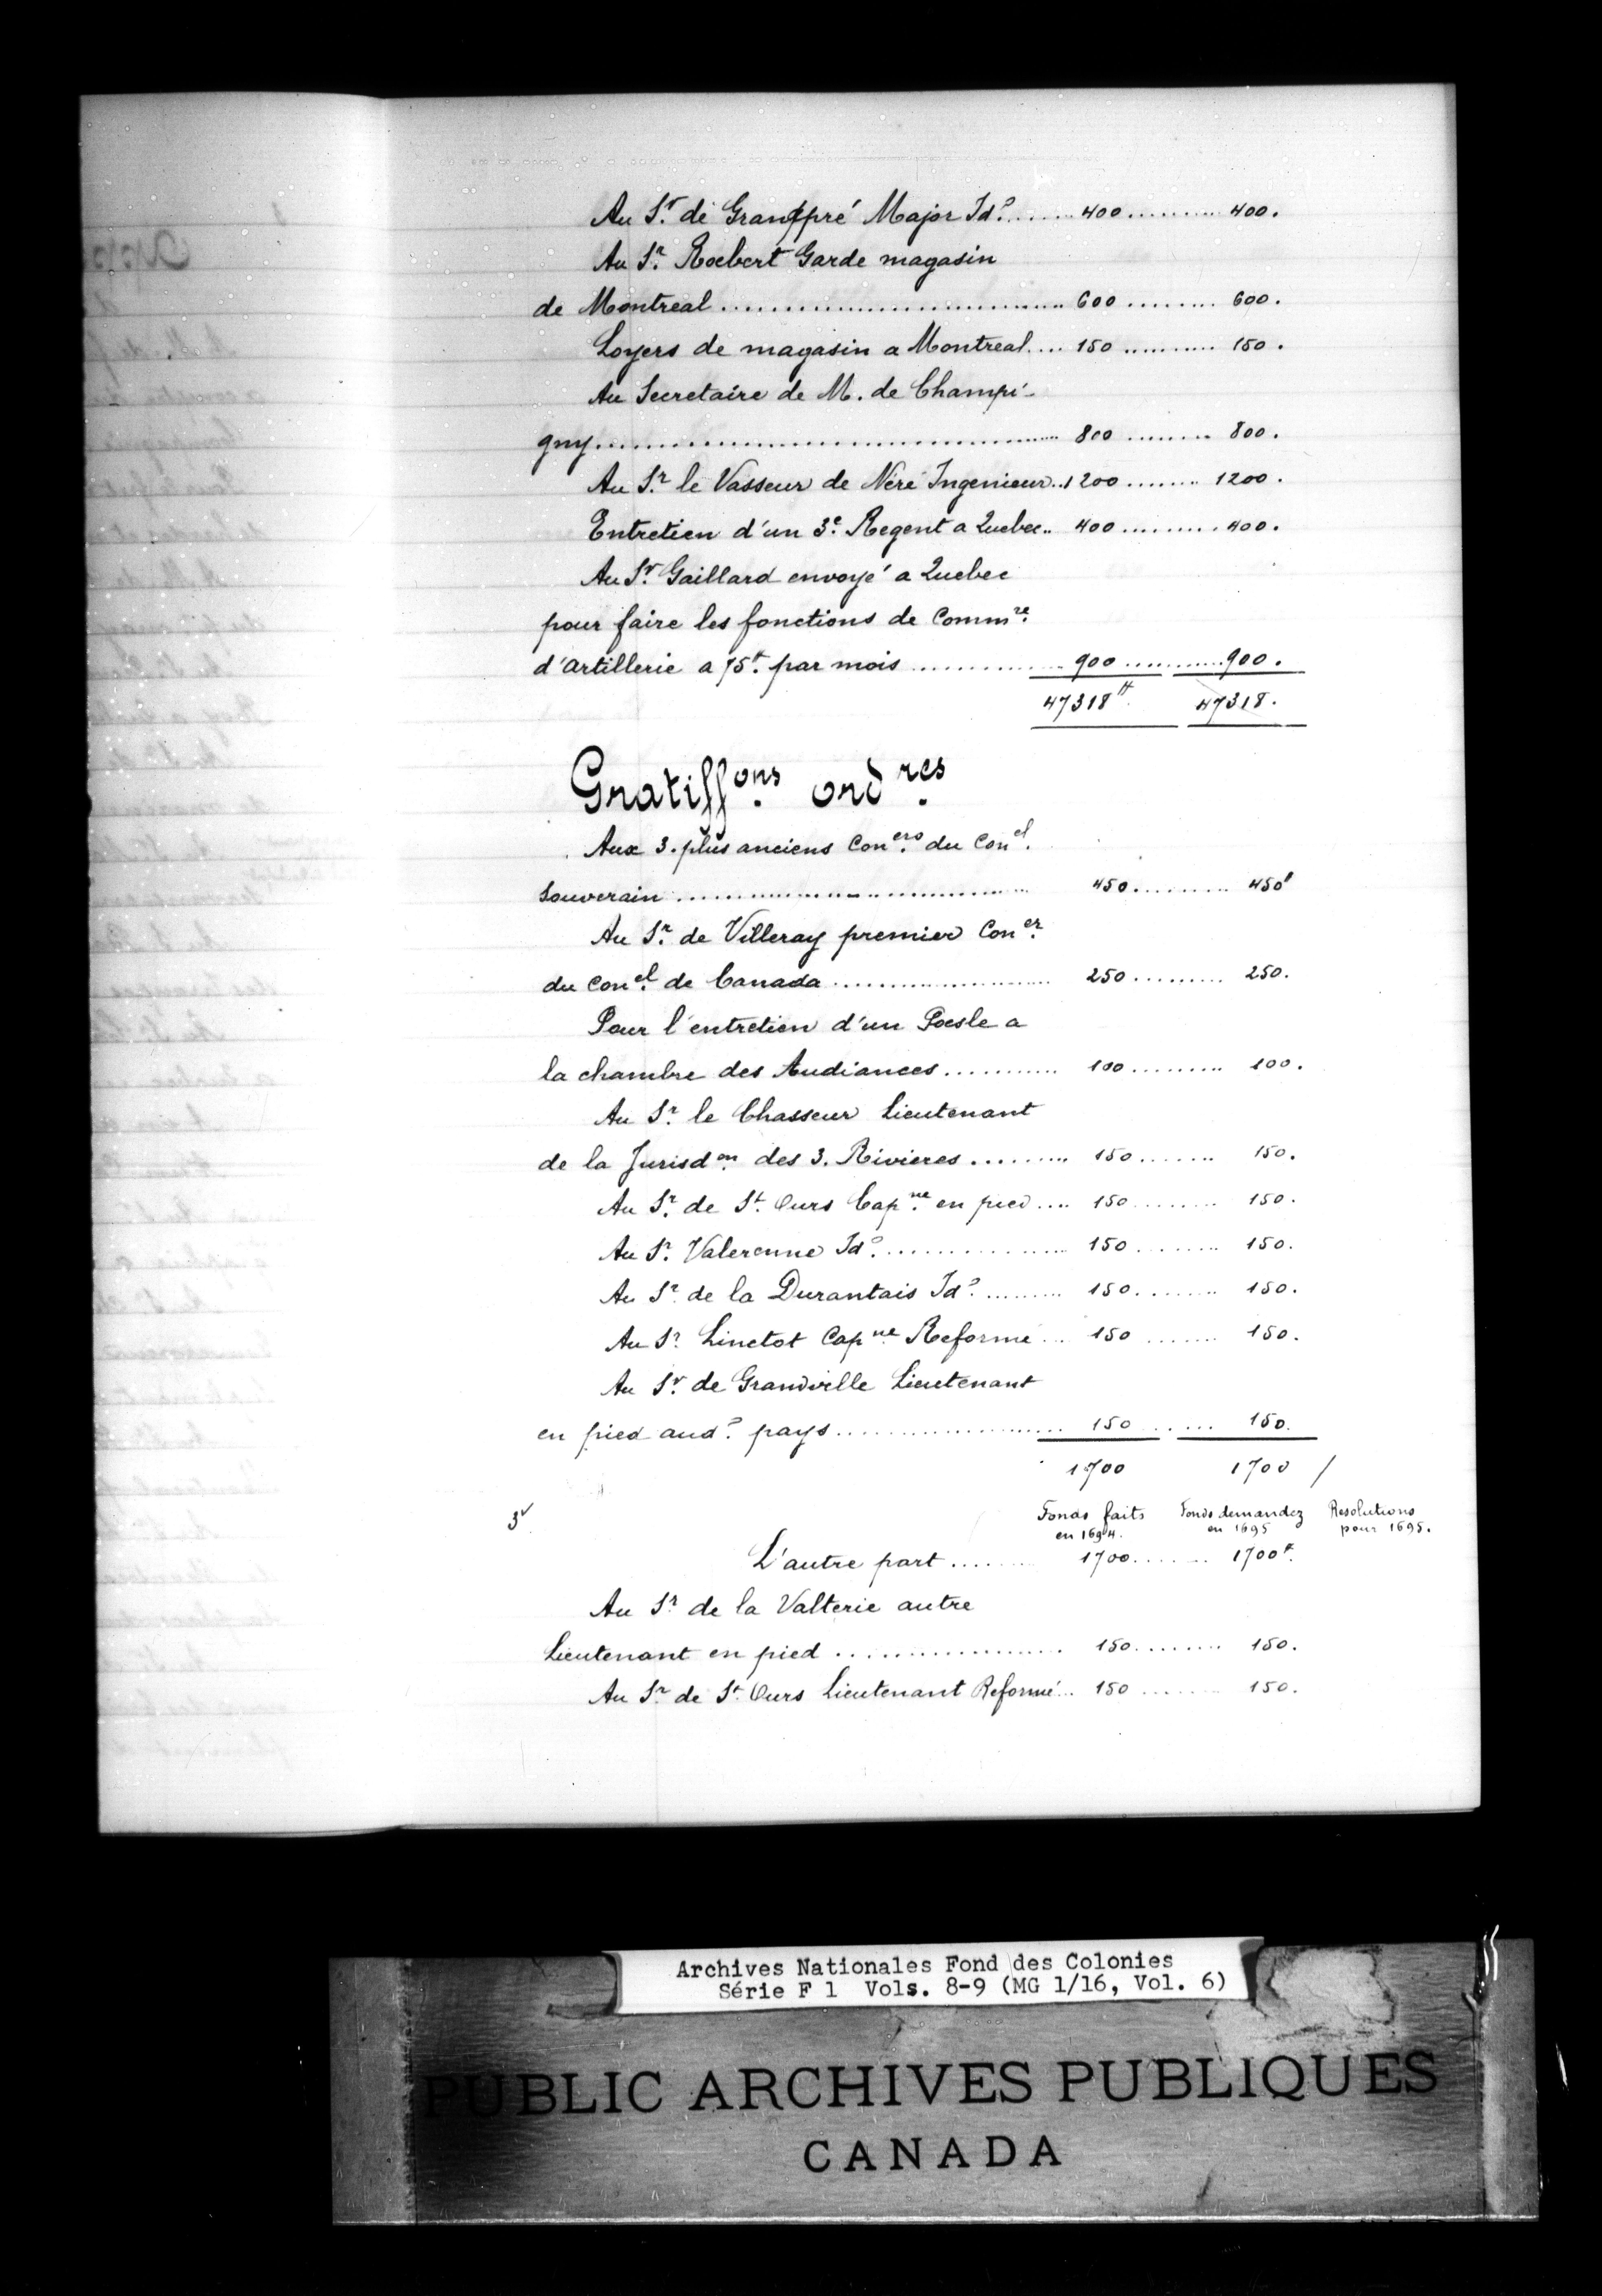 Au Sr. de Grandpré Major Ido. ...... 400 .......... 400.
Au Sr. Roebert Garde magasin
de Montreal .................................. 600 ......... 600.
Loyers de magasin a Montreal .... 150 .......... 150.
Au Secretaire de M. de Champi-
gny .......................................... 800 ......... 800.
Au Sr. le Vasseur de Neré Ingenieur .. 1200 ........ 1200.
Entretien d'un 3e. Regent a Quebec .. 400 ......... 400.
Au Sr. Gaillard envoyé a Quebec
pour faire les fonctions de Commre.
d'artillerie a 75tt. par mois ............. 900 ........... 900.
47318tt. 47318.
Gratiffons. ordres.
Aux 3. plus anciens Coners. du Conel.
Souverain ................................. 450 .......... 450tt
Au Sr. de Villeray premier Coner.
du Conel. de Canada ...................... 250 ......... 250.
Pour l'entretien d'un Poesle a
la chambre des Audiances ........... 100 ......... 100.
Au Sr. le Chasseur Lieutenant
de la Jurisdon. des 3. Rivieres ......... 150 ....... 150.
Au Sr. de St. Ours Capne. en pied .... 150 ........ 150.
Au Sr. Valerenne Ido. ................. 150 ........ 150.
Au Sr. de la Durantais Ido. ......... 150 ........ 150.
Au Sr. Linctot Capne Reformé ... 150 ....... 150.
Au Sr. de Grandville Lieutenant
en pied audo. pays ...................... 150 ...... 150.
1700 1700 /
3v Fonds faits Fonds demandez Resolutions
en 1694. en 1695 pour 1695.
L'autre part ........ 1700 ....... 1700tt.
Au Sr. de la Valterie autre
Lieutenant en pied .................... 150 ........ 150.
Au Sr. de St. Ours Lieutenant Reformé .. 150 ....... 150.
Archives Nationales Fond des Colonies
Série F 1 Vols. 8-9 (MG 1/16, Vol. 6)
PUBLIC ARCHIVES PUBLIQUES
CANADA